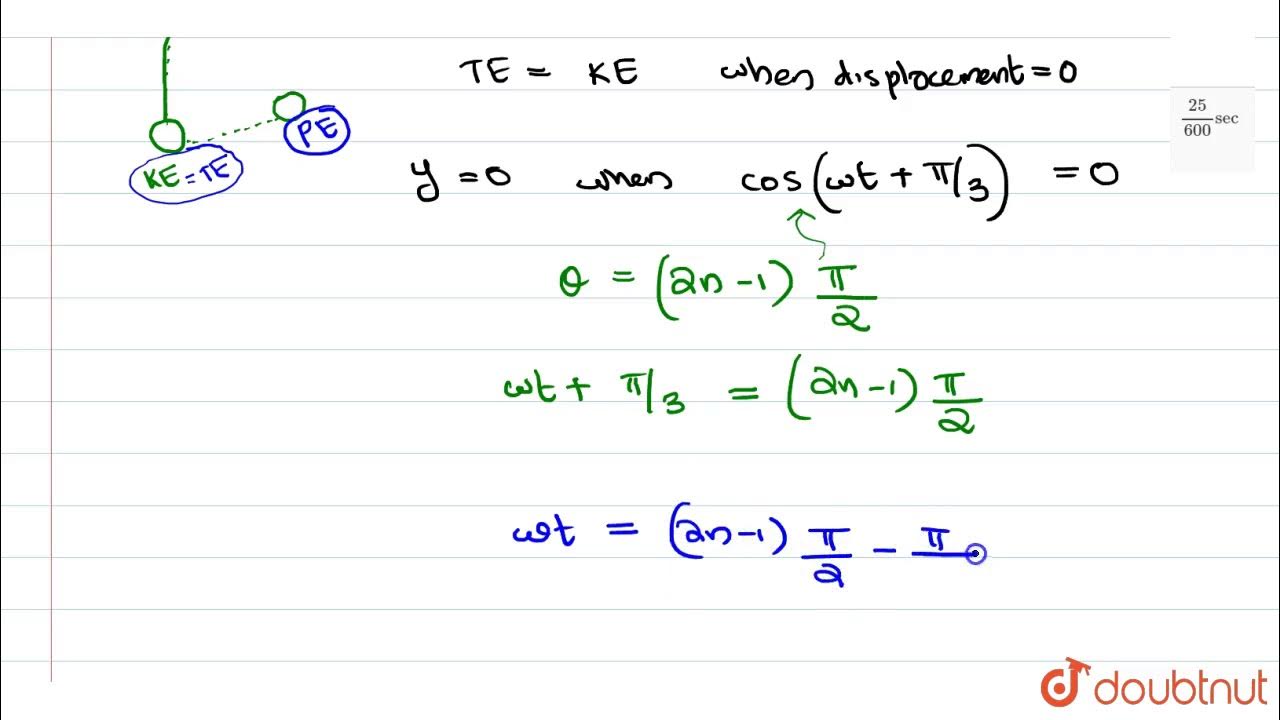 TE = KE when displacement = 0
25/600 sec
PE
KE = TE
y = 0 when cos(ωt + π/3) = 0
θ = (2n - 1) π/2
ωt + π/3 = (2n - 1) π/2
ωt = (2n - 1) π/2 - π
doubtnut